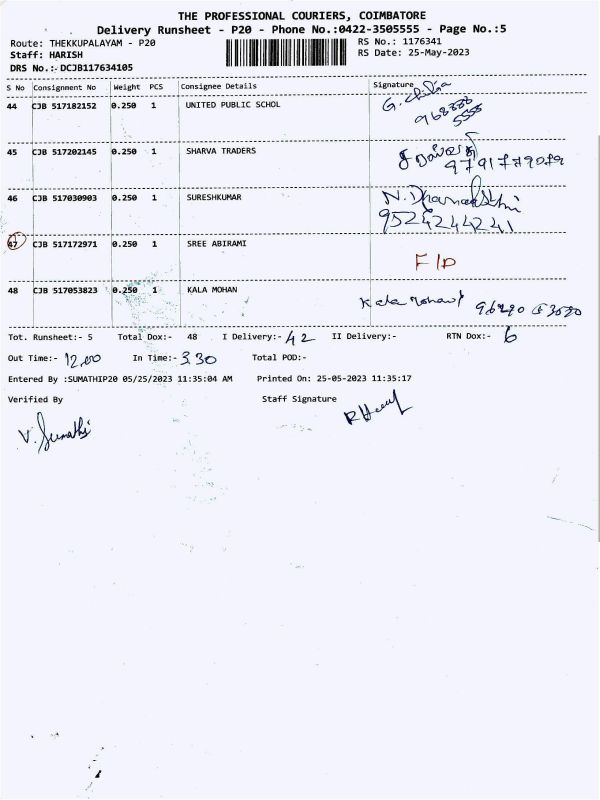 THE PROFESSIONAL COURIERS, COIMBATORE
Delivery Runsheet - P20 - Phone No.:0422-3505555 - Page No.:5
Route: THEKKUPALAYAM - P20 RS No.: 1176341
Staff: HARISH RS Date: 25-May-2023
DRS No.:- DCJB117634105
S No Consignment No Weight PCS Consignee Details Signature
44 CJB 517182152 0.250 1 UNITED PUBLIC SCHOL G.
968888
5555
45 CJB 517202145 0.250 1 SHARVA TRADERS
9791779079
46 CJB 517030903 0.250 1 SURESHKUMAR N.
9524244241
47 CJB 517172971 0.250 1 SREE ABIRAMI
F/D
48 CJB 517053823 0.250 1 KALA MOHAN
Kala
Tot. Runsheet:- 5 Total Dox:- 48 I Delivery:- 42 II Delivery:- RTN Dox:- 6
Out Time:- 12.00 In Time:- 3.30 Total POD:-
Entered By :SUMATHIP20 05/25/2023 11:35:04 AM Printed On: 25-05-2023 11:35:17
Verified By Staff Signature
V. Sumathi